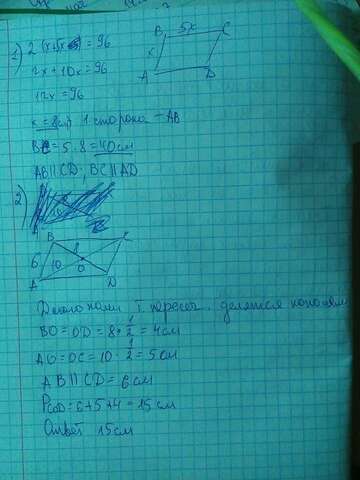 1) 2(x+5x) = 96
B 5x C
2x+10x=96
x
12x=96
A D
x=8см 1 сторона - AB
BC=5·8=40см
AB||CD; BC||AD
2)
B C
8
6 10 O
A D
Диагонали т. пересеч. делятся пополам
BO=OD=8·1/2=4см
AO=OC=10·1/2=5см
AB||CD=6см
Pcod=6+5+4=15см
Ответ 15см